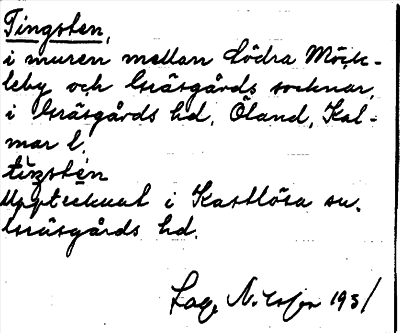 Tingsten,
i muren mellan Södra Möck-
leby och Gräsgårds socknar,
i Gräsgårds hd, Öland, Kal-
mar l.
tiŋsten
Upptecknat i Kastlösa sn.
Gräsgårds hd.
Lage Nilsson 1931